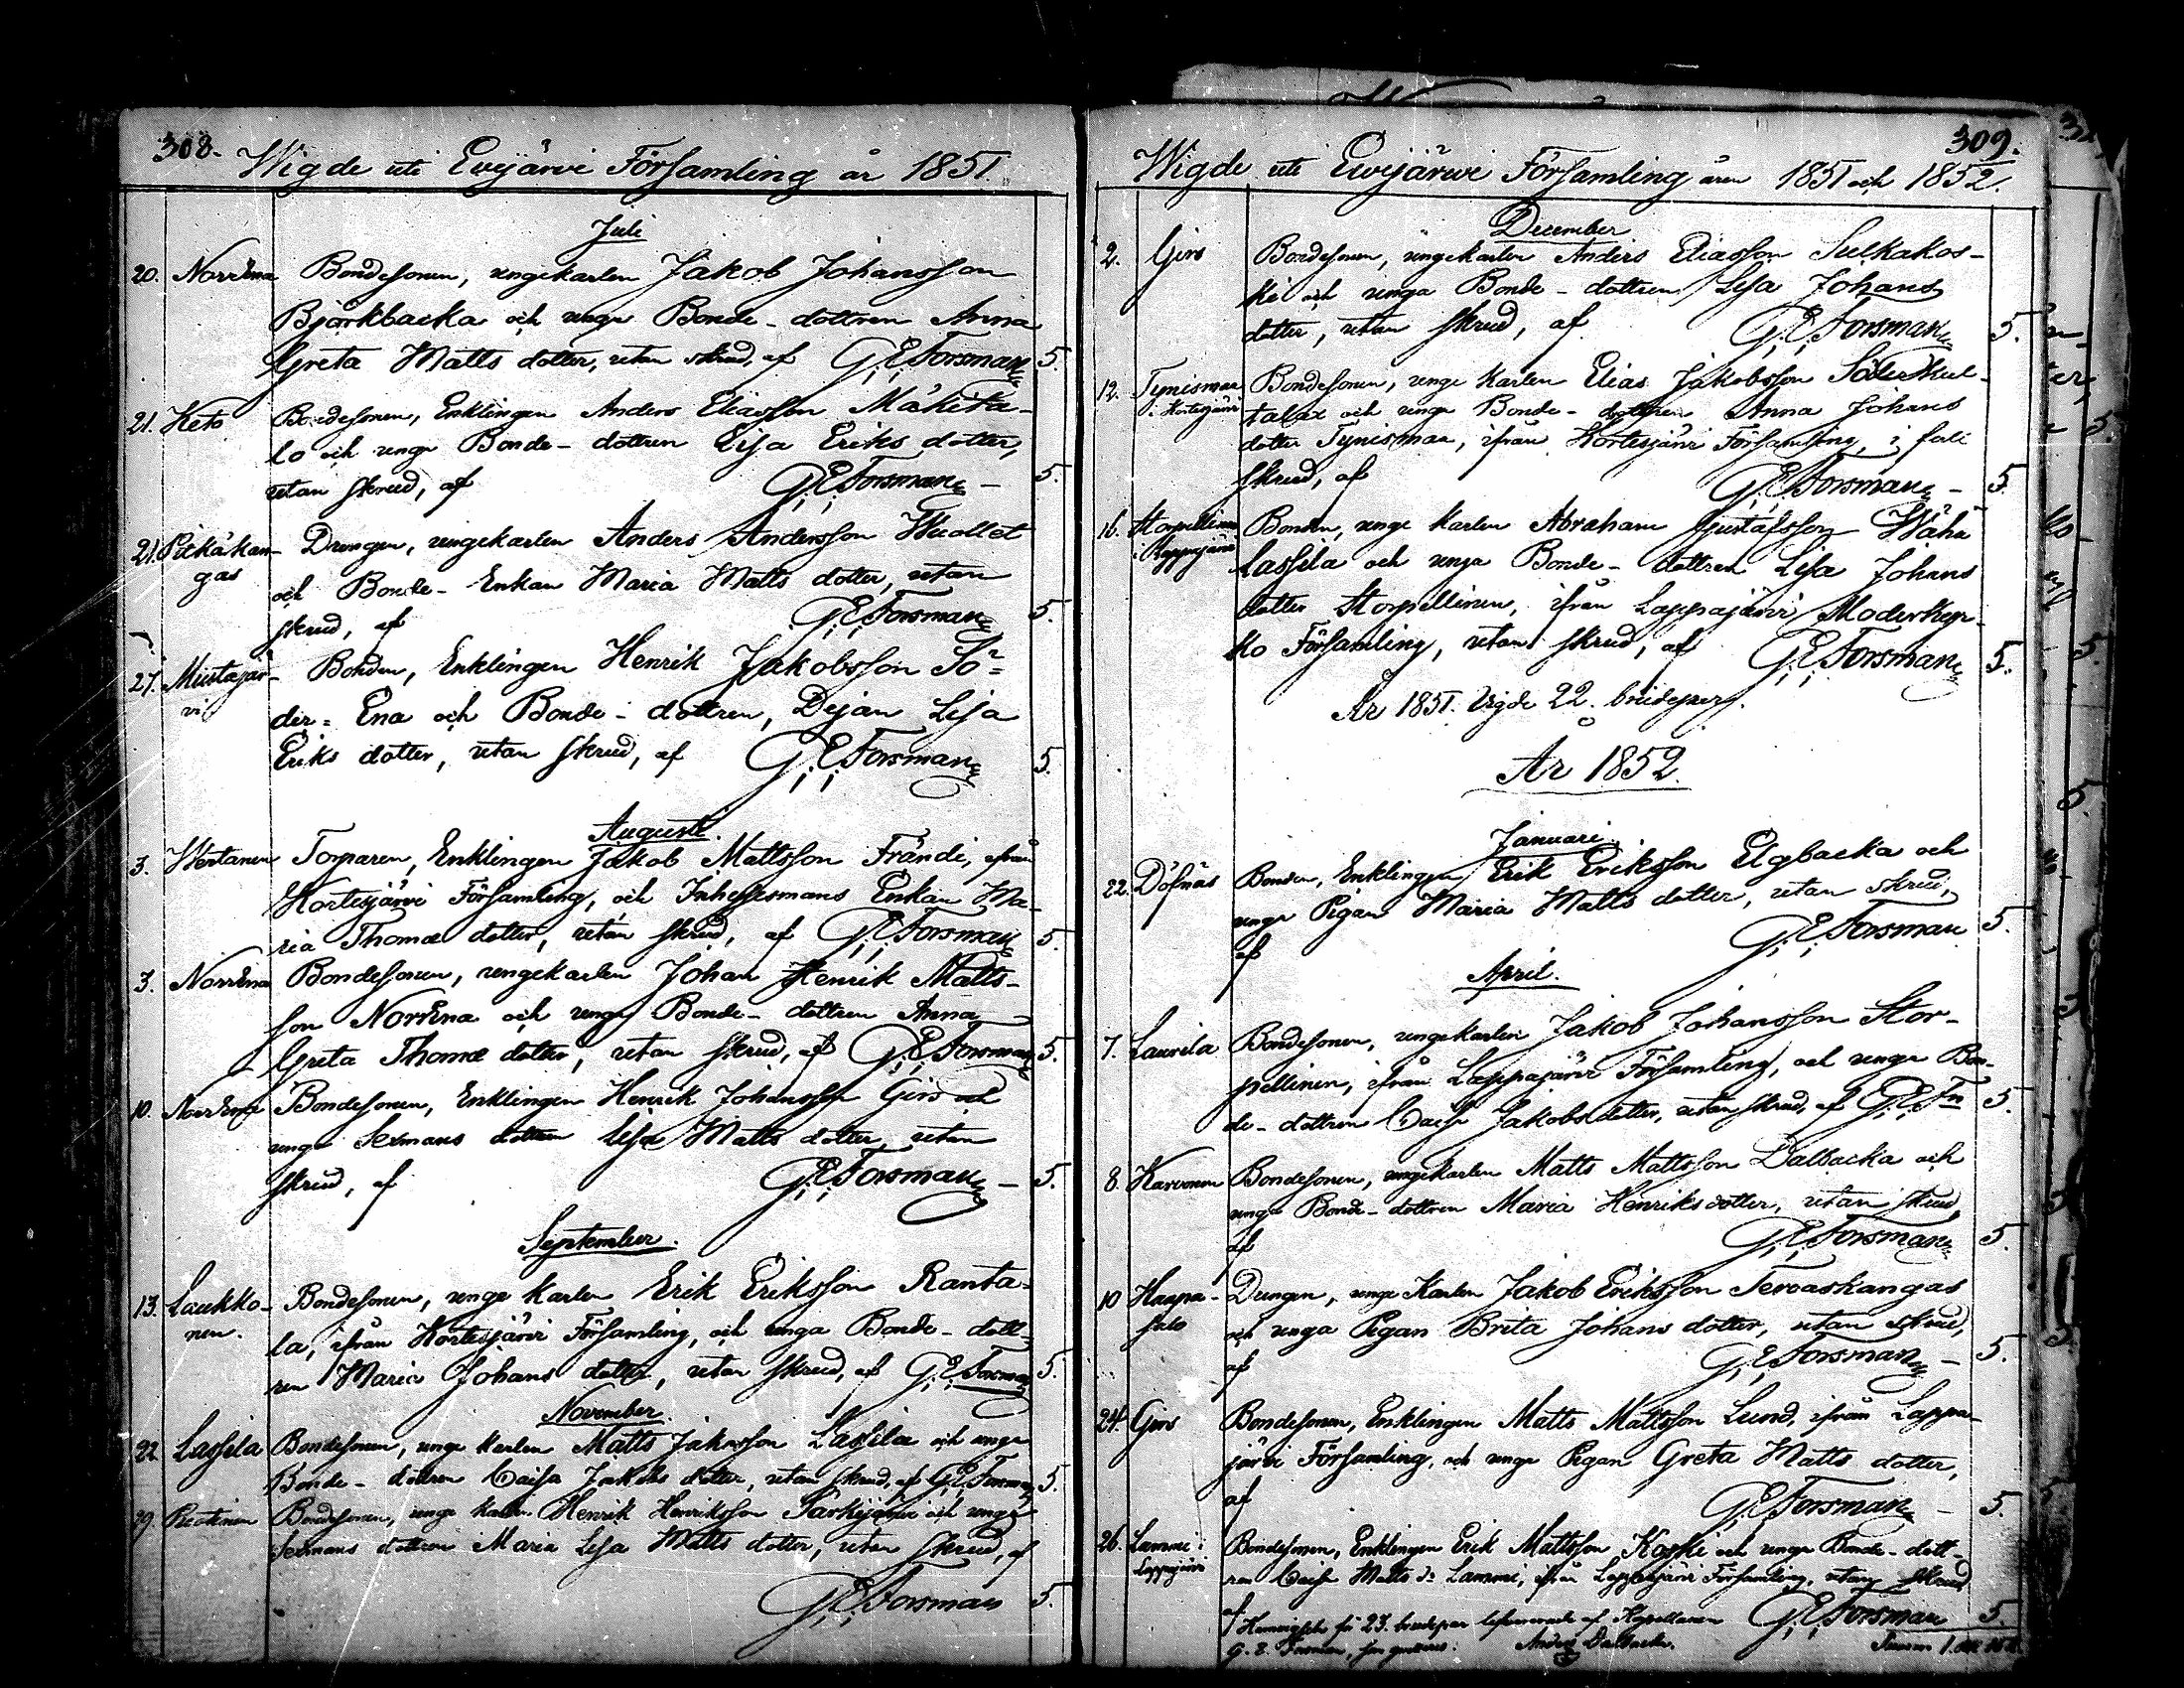 308.
Wigde uti Ewijärwi Församling år 1851.
Juli
20. Norrena Bondesonen, ungekarlen Jakob Johansson
Björkbacka och unga Bonde-dottren Anna
Greta Matts dotter, utan skrud, af G. E. Forsman 5.
21. Keto Bondesonen, Enklingen Anders Eliasson Mäkita-
lo och unga Bonde-dottren Lisa Eriks dotter,
utan skrud, af G. E. Forsman - 5.
21. Pitkäkan- Drengen, ungekarlen Anders Andersson Wuollet
gas och Bonde-Enkan Maria Matts dotter, utan
skrud, af G. E. Forsman 5.
27. Mustajär- Bonden, Enklingen Henrik Jakobsson Sö-
vi der=Ena och Bonde-dottren, Pigan Lisa
Eriks dotter, utan skrud, af G. E. Forsman 5.
Augusti.
3. Wertanen Torparen, Enklingen Jakob Mattsson Frändi, ifrån
Kortesjärvi Församling, och Inhysesmans Enkan Ma-
ria Thomæ dotter, utan skrud, af G. E. Forsman 5.
3. Norrena Bondesonen, ungekarlen Johan Henrik Matts-
son Norrena och unga Bonde-dottren Anna
Greta Thomæ dotter, utan skrud, af G. E. Forsman 5.
10. Norrena Bondesonen, Enklingen Henrik Johansson Girs och
unga Sexmans dottren Lisa Matts dotter, utan
skrud, af G. E. Forsman - 5.
September.
13. Laukko- Bondesonen, unge karlen Erik Eriksson Ranta-
nen. la, ifrån Kortesjärvi Församling, och unga Bonde-dott-
ren Maria Johans dotter, utan skrud, af G. E. Forsman 5.
November.
22 Lassila Bondesonen, unge karlen Matts Jakobsson Lassila och unga
Bonde-dottren Caisa Jakobs dotter, utan skrud, af G. E. Forsman 5.
29. Bondesonen, unge karlen Henrik Henriksson Särkijärvi och unga
Sexmans dottren Maria Lisa Matts dotter, utan skrud, af
G. E. Forsman 5.
309.
Wigde uti Ewijärwi Församling åren 1851 och 1852.
December
2. Girs Bondesonen, ungekarlen Anders Eliasson Sulkakos-
ki och unga Bonde-dottren Lisa Johans
dotter, utan skrud, af G. E. Forsman 5.
12. Tynismaa Bondesonen, unge karlen Elias Jakobsson Söderkul-
i Kortesjärvi talax och unga Bonde-dottren Anna Johans
dotter Tynismaa, ifrån Kortesjärvi Församling, i full
skrud, af G. E. Forsman - 5.
16. Storpellinen Bonden, unge karlen Abraham Gustafsson Wähä
i Lappajärvi Lassila och unga Bonde-dottren Lisa Johans
dotter Storpellinen, ifrån Lappajärvi Moderkyr-
ko Församling, utan skrud, af G. E. Forsman 5.
År 1851. Vigde 22. brudepar.
År 1852.
Januari.
22. Döfnäs Bonden, Enklingen Erik Eriksson Elgbacka och
unga Pigan Maria Matts dotter, utan skrud,
af G. E. Forsman 5.
April.
7. Laurila Bondesonen, ungekarlen Jakob Johansson Stor-
pellinen, ifrån Lappajärvi Församling, och unga Bon-
de-dottren Caisa Jakobsdotter, utan skrud, af G. E. Fn 5.
8. Karvonen Bondesonen, ungekarlen Matts Mattsson Dalbacka och
unga Bonde-dottren Maria Henriksdotter, utan skrud,
af G. E. Forsman 5.
10 Haapa- Drengen, unge Karlen Jakob Eriksson Tervaskangas
salo och unga Pigan Brita Johans dotter, utan skrud,
af G. E. Forsman - 5.
24. Girs Bondesonen, Enklingen Matts Mattsson Lund, ifrån Lappa-
järvi Församling, och unga Pigan Greta Matts dotter,
af G. E. Forsman - 5.
26. Lammi i Bondesonen, Enklingen Erik Mattsson Koski och unga Bonde-dott-
Lappajärvi ren Caisa Matts dr Lammi, ifrån Lappajärvi Församling, utan skrud
af G. E. Forsman 5.
för 23. brudepar af Kapellanen
G. E. Forsman, Anders Dalbacka. Summa 1.